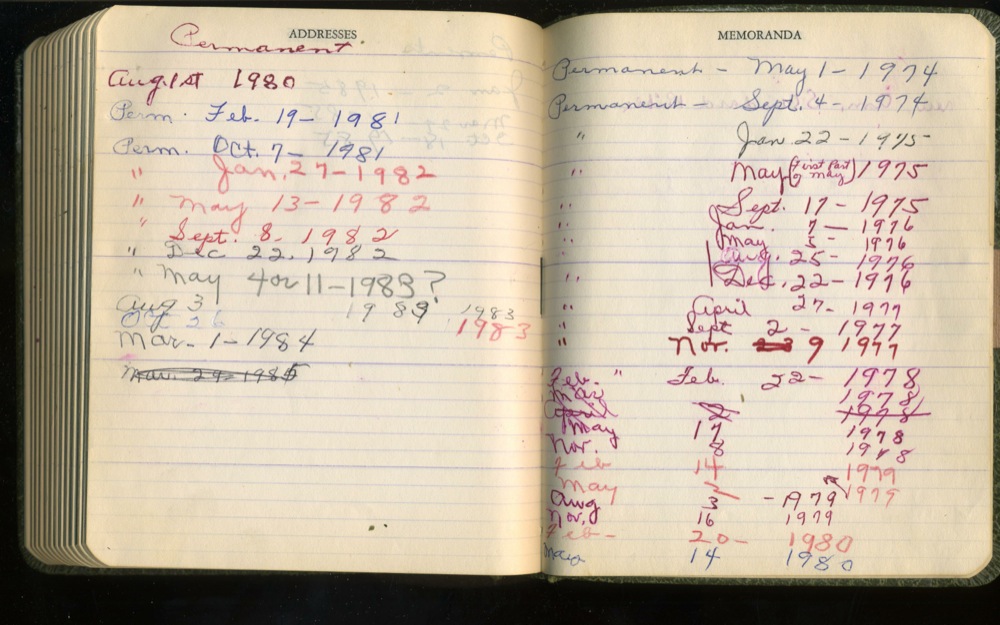 ADDRESSES
Permanent
Aug 1st 1980
Perm. Feb. 19-1981
Perm. Oct. 7-1981
" Jan. 27-1982
" May 13-1982
" Sept. 8. 1982
" Dec 22. 1982
" May 4 or 11-1983?
Aug 3 1983 1983
Oct 26 1983
Mar. 1-1984
Mar. 29-1985
MEMORANDA
Permanent - May 1-1974
Permanent - Sept. 4-1974
" Jan. 22-1975
" May (first part of May) 1975
" Sept. 17-1975
" Jan. 7-1976
" May 5-1976
" Aug. 25-1976
" Dec. 22-1976
" April 27-1977
" Sept 2-1977
" Nov. 9 1977
Feb. " Feb. 22-1978
Mar 1978
April 2 1978
May 17 1978
Nov. 8 1978
Feb 14 1979
May 1979
Aug 3 - 1979
Nov. 16 1979
Feb - 20- 1980
May 14 1980